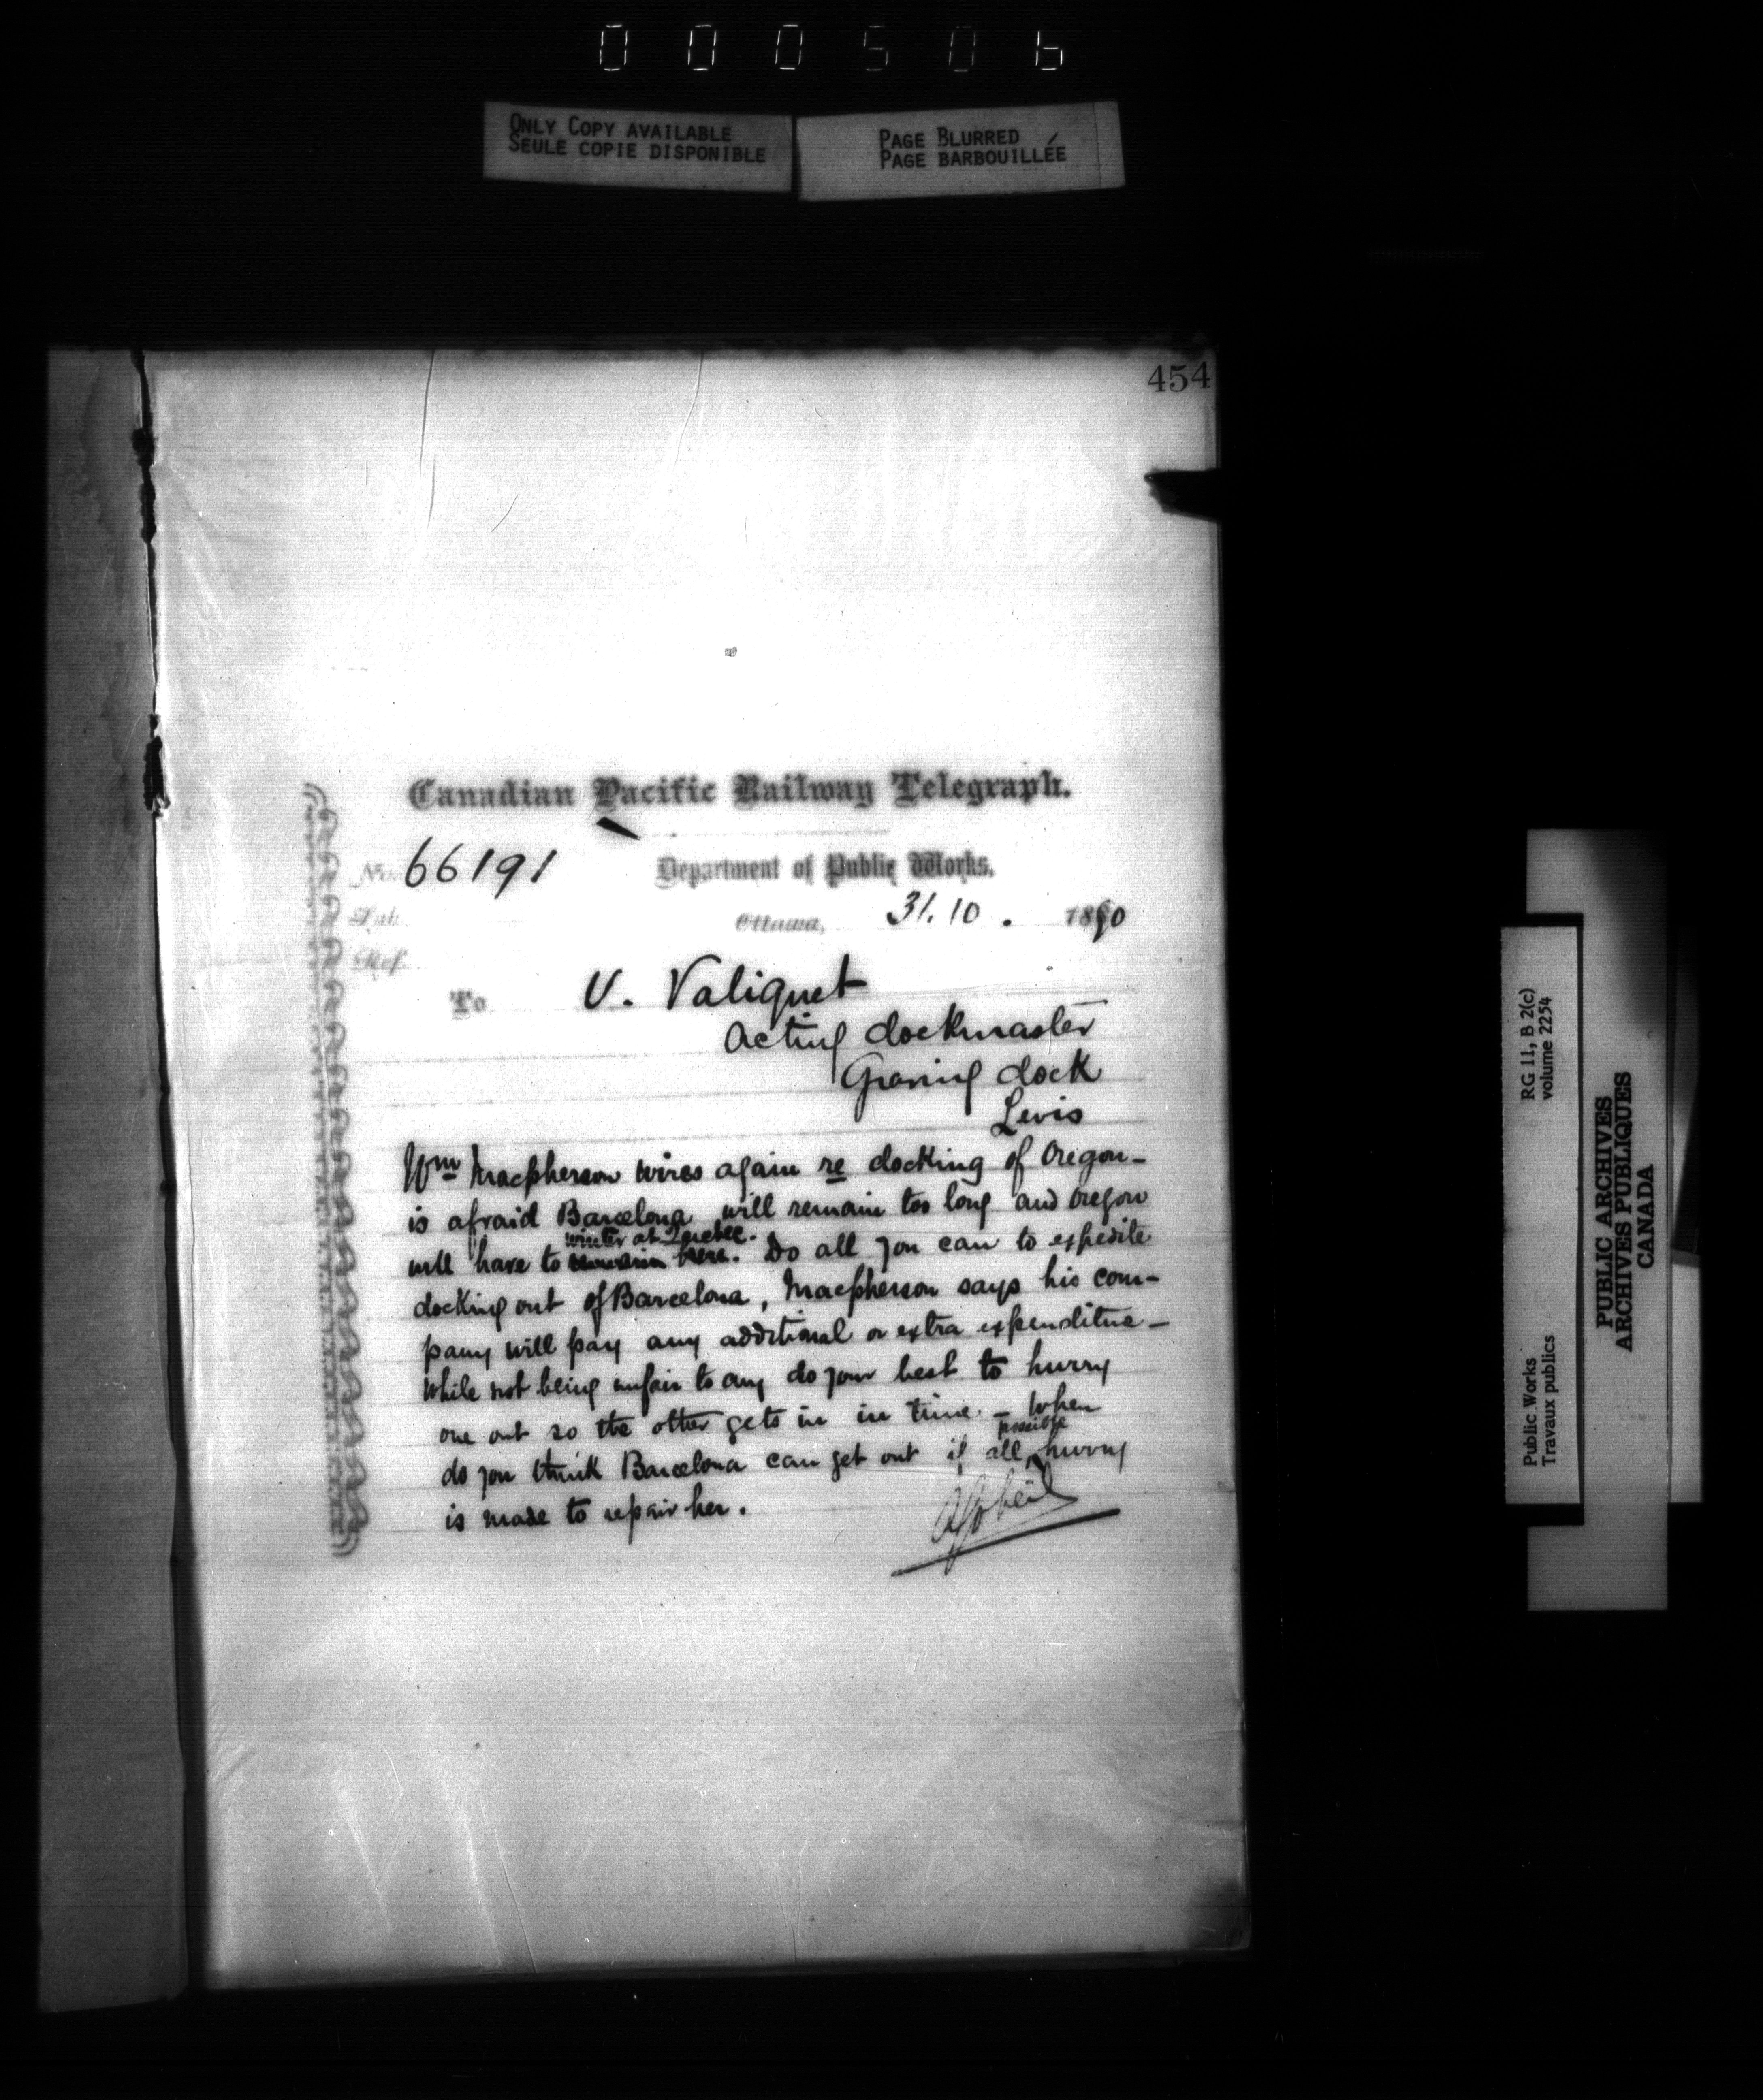 000506
ONLY COPY AVAILABLE
SEULE COPIE DISPONIBLE
PAGE BLURRED
PAGE BARBOUILLÉE
454
Canadian Pacific Railway Telegraph.
No. 66191 Department of Public Works.
Sub.
Ottawa, 31.10. 1890
Ref.
To U. Valiquet
Acting dockmaster
Graving dock
Levis
Wm Macpherson wires again re docking of Oregon –
is afraid Barcelona will remain too long and Oregon
winter at Quebec.
will have to here. Do all you can to expedite
docking out of Barcelona, Macpherson says his com-
pany will pay any additional or extra expenditure –
While not being unfair to any do your best to hurry
one out so the other gets in in time. – When
possible
do you think Barcelona can get out if all hurry
is made to repair her.
A Gobeil
RG 11, B 2(c)
volume 2254
Public Works
Travaux publics
PUBLIC ARCHIVES
ARCHIVES PUBLIQUES
CANADA